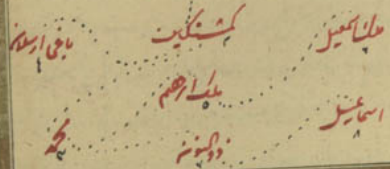 ملك اسمعيل كمشتكين ياغى ارسلان
٦ ٤
ملك ابرهيم
٥
اسماعيل ذوالنون محمد
٨